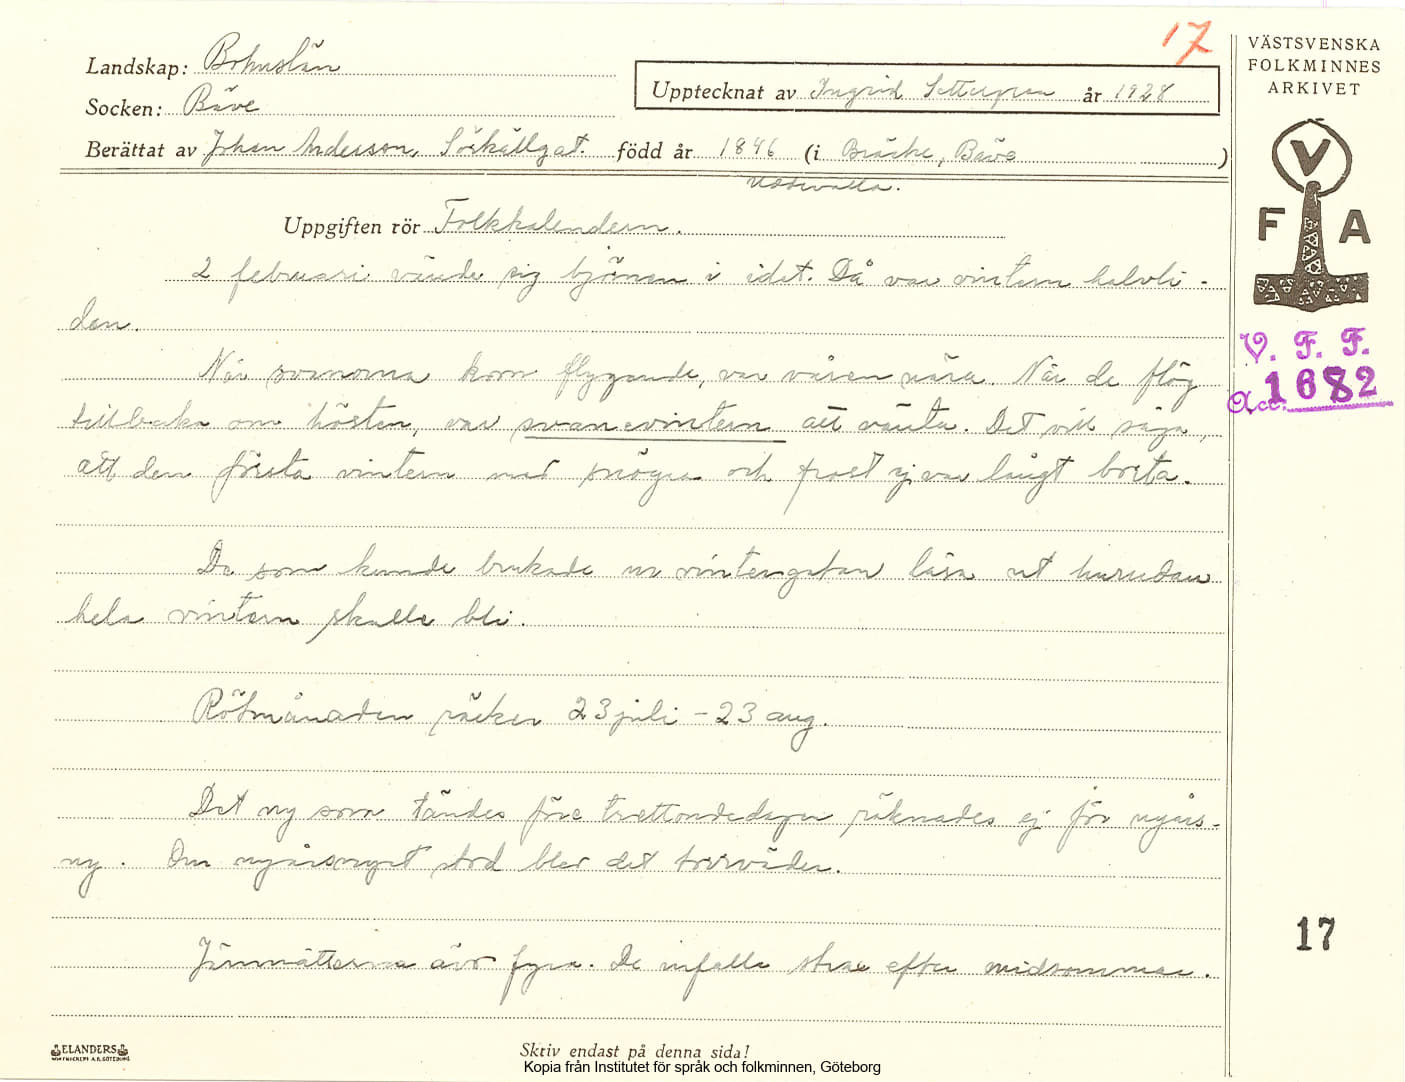 17
Landskap: Bohuslän
Socken: Bäve
Upptecknat av Ingrid Settergren år 1928
Berättat av Johan Andersson, Sörkällgat. född år 1846 (i Bräcke, Bäve )
Uddevalla.
Uppgiften rör Folkkalendern.
2 februari vände sig björnen i idet. Då var vintern halvli-
den.
När svanorna kom flygande, var våren nära. När de flög
tillbaka om hösten, var svanevintern att vänta. Det vill säga,
att den första vintern med snögra och frost ej var långt borta.
De som kunde brukade ur vintergatan läsa ut hurudan
hela vintern skulle bli.
Rötmånaden räcker 23 juli - 23 aug.
Det ny som tändes före trettondedagen räknades ej för nyårs-
ny. Om nyårsnyet stod blev det torrväder.
Järnnätterna ävo fyra. De infalla strax efter midsommar.
VÄSTSVENSKA
FOLKMINNES
ARKIVET
V
F A
V. F. F.
Acc. 1682
17
ELANDERS
Skriv endast på denna sida!
Kopia från Institutet för språk och folkminnen, Göteborg